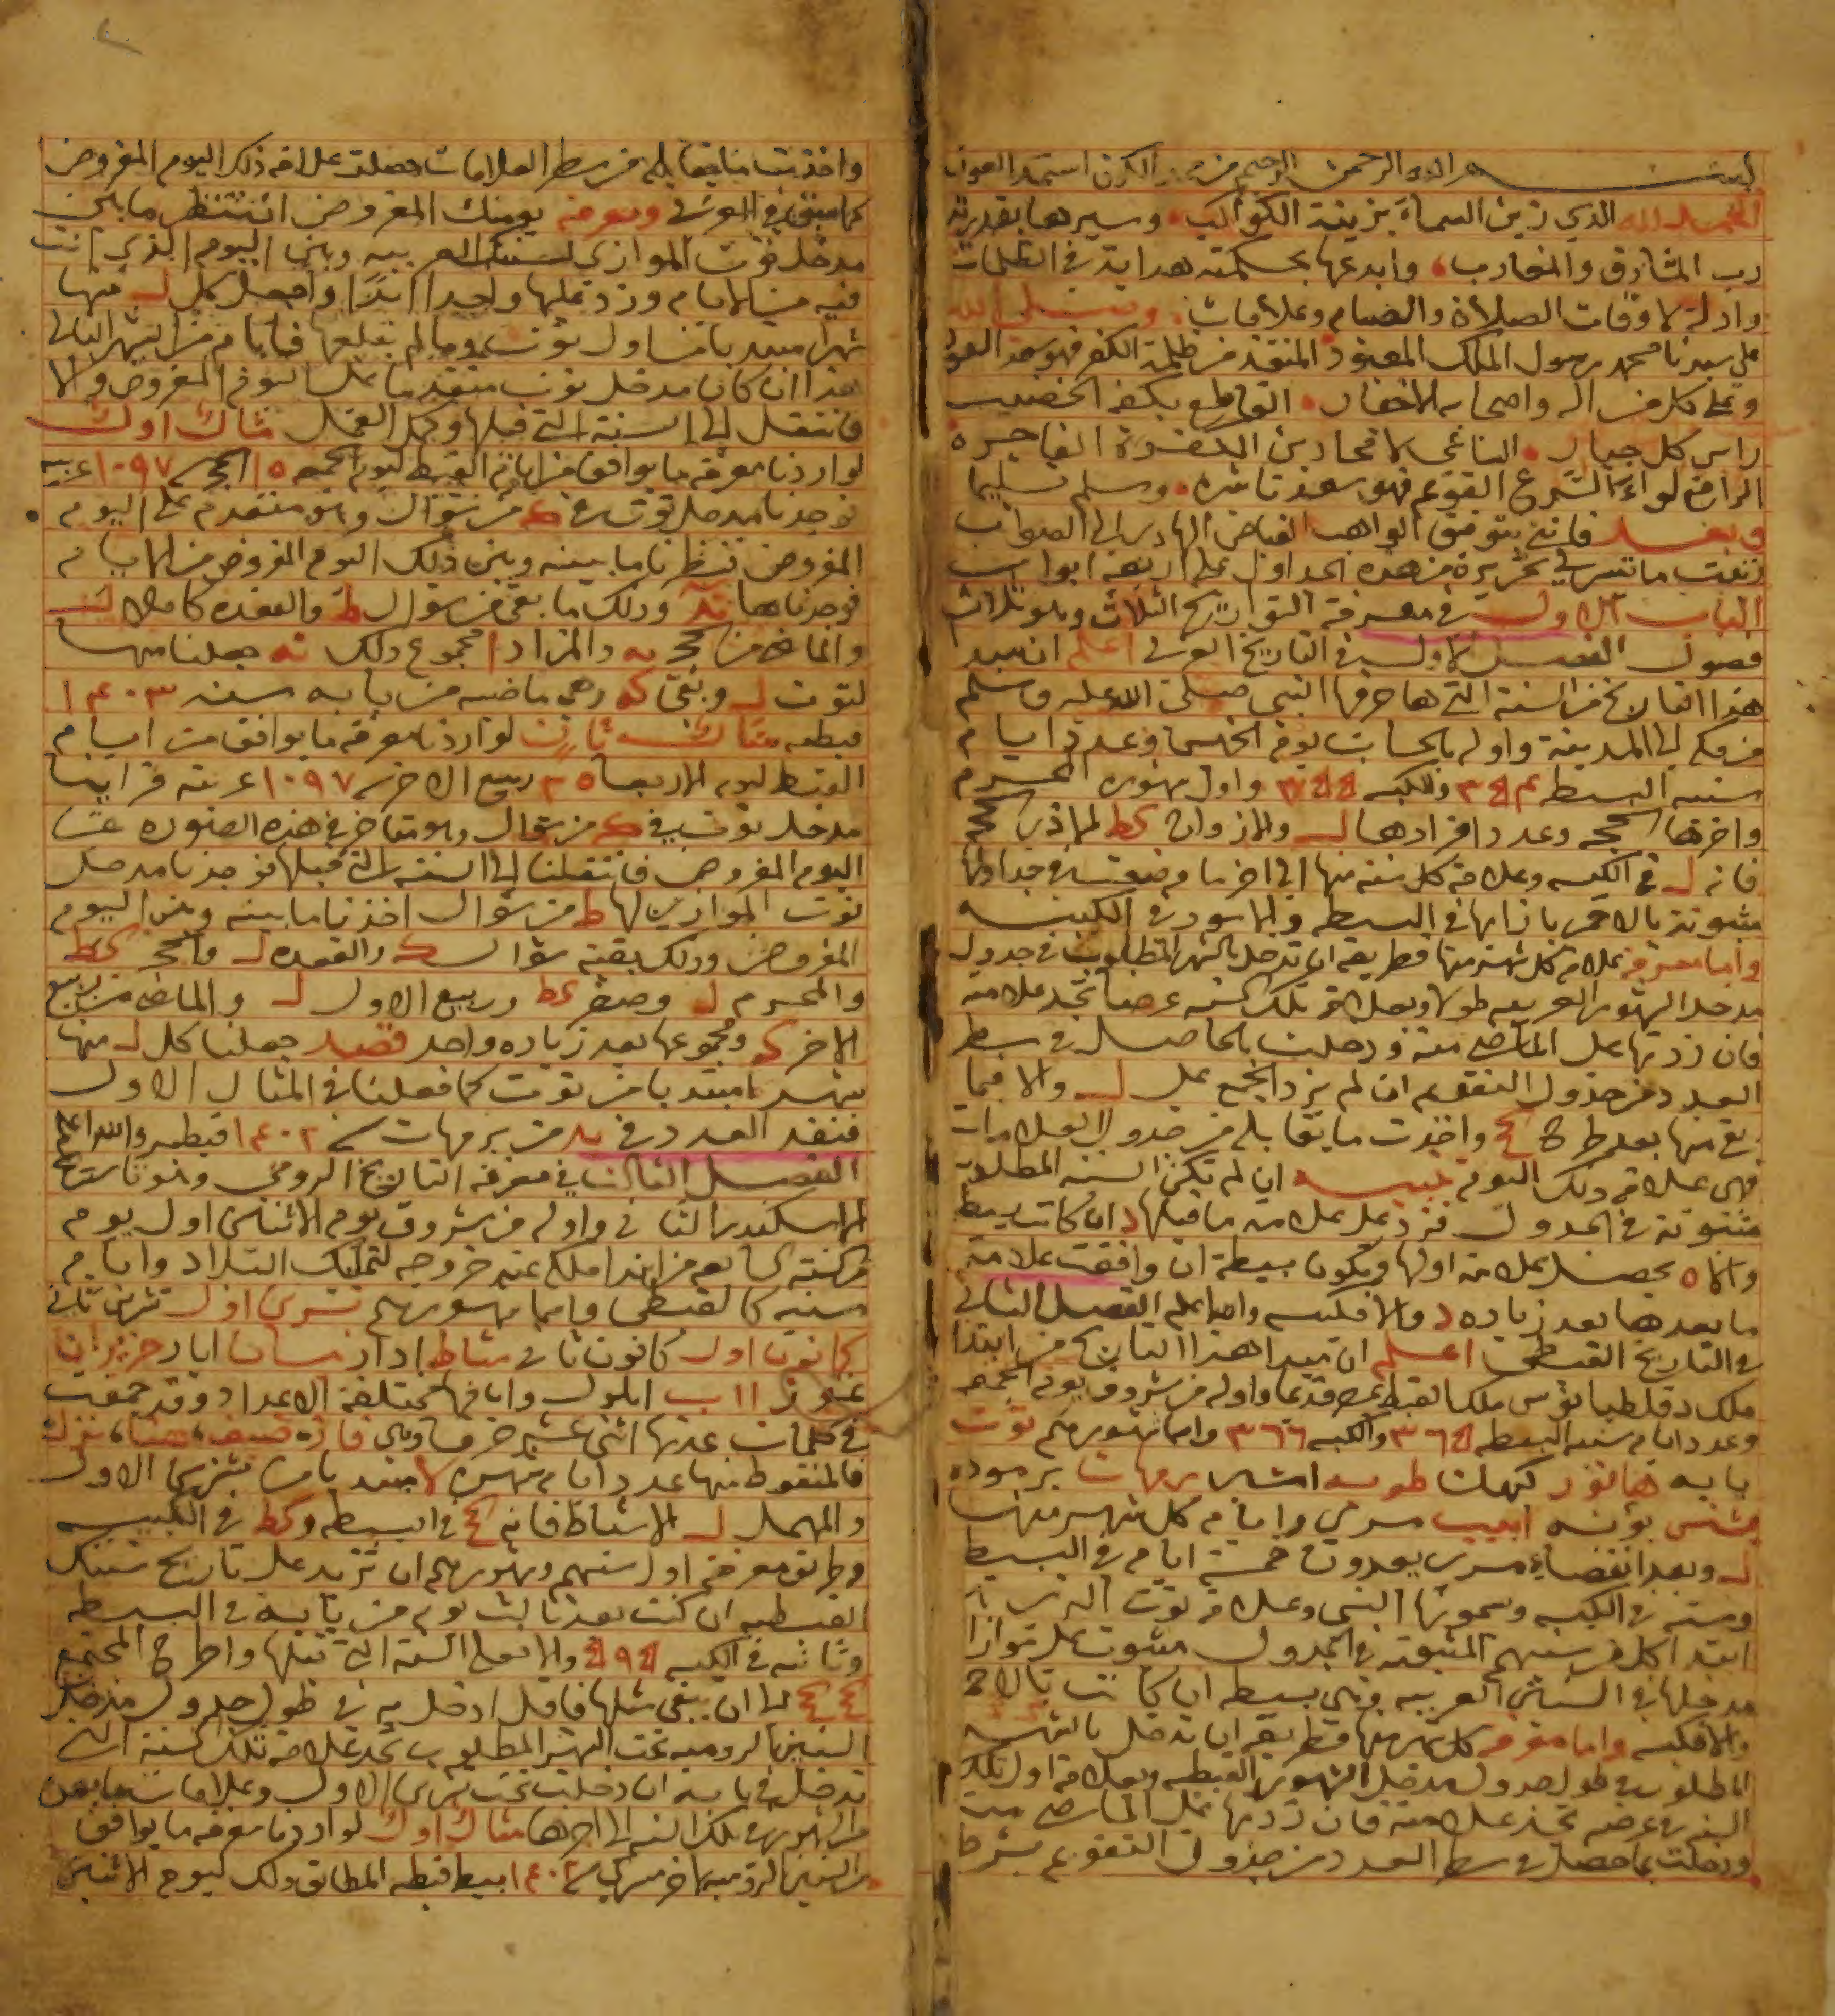 بسم الله الرحمن الرحيم من الكون استمد العون
الحمد لله الذي زين السماء بزينة الكواكب وسيرها بقدرته
رب المشارق والمغارب وابدعها بحكمته هداية في الظلمات
وادلة لاوقات الصلاة والصيام وعلامات وصلى الله
على سيدنا محمد رسول الملك المعبود المنقذ من ظلمة الكفر فهو سعد السعود
وعلى كل من اله واصحابه الاخيار القاطع بكفه الخضيب
راس كل جبار الناعي لامحادين الكفرة الفاجره
الرافع لواء الشرع القويم فهو سعد ناشره وسلم تسليما
وبعد فانني بتوفيق الواهب الفياض الهادي الى الصواب
رتبت ما تيسر لي تحريره من هذه الجداول على اربعة ابواب
الباب الاول في معرفة التواريخ الثلاث وهو ثلاث
فصول الفصل الاول في التاريخ العربي اعلم ان مبدا
هذا التاريخ من السنة التي هاجر فيها النبي صلى الله عليه وسلم
من مكة الى المدينة واوله بالحساب يوم الخميس وعدد ايام
سنيه البسيطه ٣٥٤ والكبيسه ٣٥٥ واول شهوره المحرم
واخرها الحجه وعدد افرادها ل والازواج كط الا ذي الحجه
فانه ل في الكبيسه وعلامة كل سنة منها الى اخر ما وضعت في جداولها
مثبوتة بالاحمر بازائها في البسيطه وبالاسود في الكبيسه
واما معرفة علامة كل شهر منها فطريقه ان تدخل بالشهر المطلوب في جدول
مدخل الشهور العربيه طولا وبعلامة تلك السنه عرضا تجد علامته
فان زدتها على الماضي منه ودخلت بالحاصل في سطر
العدد من جدول التقويم ان لم يزد الجمع على ل والا فبما
بقي منها بعد طرح واخذت ما يقابله من جدول العلامات
فهي علامة ذلك اليوم تنبيه ان لم تكن السنة المطلوبة
مثبوتة في الجدول فزد على علامة ما قبلها د ان كانت بسيطه
والا ه يحصل علامة اولها وتكون بسيطة ان وافقت علامة
ما بعدها بعد زياده د والا فكبيسه والله اعلم الفصل الثاني
في التاريخ القبطي اعلم ان مبدا هذا التاريخ من ابتدا
ملك دقلطيانوس ملك القبط بمصر قديما واوله من شروق يوم الجمعه
وعدد ايام سنيه البسيطه ٣٦٥ والكبيسه ٣٦٦ واسما شهورهم توت
بابه هاتور كيهك طوبه امشير برمهات برموده
بشنس بؤنه ابيب مسري وايام كل شهر منها
ل وبعد انقضاء مسري يعدون خمسة ايام في البسيط
وسته في الكبيسه وسموها النسي وعلامة توت الذي هو
ابتدا كل من سنيهم المثبوته في الجدول مثبوت على توازا
مدخلها في السنين العربيه وهي بسيطه ان كانت بالاحمر
والا فكبيسه واما معرفة كل شهر منها فطريقه ان تدخل بالشهر
المطلوب في طول جدول مدخل الشهور القبطيه وبعلامة اول تلك
السنه في عرضه تجد علامته فان زدتها على الماضي منه
ودخلت بما حصل في سطر العدد من جدول التقويم بشرط
واخذت ما يقابله من سطر العلامات حصلت علامة ذلك اليوم المفروض
كما سبق في العربي ومعرفة يومك المفروض ان تنظر ما بين
مدخل توت الموازي لسنتك العربيه وبين اليوم الذي انت
فيه من الايام وزد عليها واحدا ابدا واجعل كل ل منها
شهرا مبتديا من اول توت وما لم يبلغها فايام من الشهر التالي
هذا ان كان مدخل توت متقدما على اليوم المفروض والا
فانتقل الى السنة التي قبلها وكمل العمل مثال اول
لو اردنا معرفة ما يوافق من ايام القبط ليوم الجمعه ١٥ الحجه سنة ١٠٩٧ عربيه
فوجدنا مدخل توت في ك من شوال وهو متقدم على اليوم
المفروض فنظرنا ما بينه وبين ذلك اليوم المفروض من الايام
فوجدناها ند وذلك ما بقي من شوال ط والقعده كاملا ل
والماضي من الحجه يه والمزاد ا مجموع ذلك نه جعلنا منها
لتوت ل وبقي كه وهي ماضيه من بابه سنه ١٤٠٣
قبطيه مثال ثان لو اردنا معرفة ما يوافق من ايام
القبط ليوم الاربعا ٢٥ ربيع الاخر سنة ١٠٩٧ عربيه فراينا
مدخل توت في ك من شوال وهو متاخر في هذه الصوره عن
اليوم المفروض فانتقلنا الى السنه التي قبلها فوجدنا مدخل
توت الموازي لها ط من شوال اخذنا ما بينه وبين اليوم
المفروض وذلك بقية شوال ك والقعده ل والحجه كط
والمحرم ل وصفر كط وربيع الاول ل والماضي من ربيع
الاخر كه ومجموعها بعد زياده واحد قصد جعلنا كل ل منها
شهرا مبتديا من توت كما فعلنا في المثال الاول
فنفد العدد في يد من برمهات سنة ١٤٠٢ قبطيه والله اعلم
الفصل الثالث في معرفة التاريخ الرومي وهو تاريخ
الاسكندر الثاني واوله من شروق يوم الاثنين اول يوم
من السنه السابعه من ابتدا ملكه عند خروجه لتمليك البلاد وايام
سنيه كالقبطي واسما شهورهم تشرين اول تشرين ثاني
كانون اول كانون ثاني شباط اذار نيسان ايار حزيران
تموز اب ايلول وايامها مختلفة الاعداد وقد جمعت
في كلمات عدتها اثني عشر حرفا وهي
فالمنقوط منها عدد ايام شهره لا مبتديا من تشرين الاول
والمهمل ل الا شباط فانه كح في البسيطه وكط في الكبيسه
وطريق معرفة اول سنيهم وشهورهم ان تزيد على تاريخ سنتك
القبطيه ان كنت بعد ثالث يوم من بابه في البسيطه
وثانيه في الكبيسه ٥٩٥ والا فعلى السنة التي قبلها واطرح المجتمع
كح كح الى ان يبقى مثلها فاقل ادخل به في طول جدول مدخل
السنين الروميه تحت الشهر المطلوب تجد علامة تلك السنة التي
تدخل في بابه ان دخلت تحت تشرين الاول وعلامات ما بعده
من الشهور في تلك السنه الى اخرها مثال اول لو اردنا معرفة ما يوافق
من السنين الروميه اخر مسري سنة ١٤٠٢ بسيط قبطيه المطابق ذلك ليوم الاثنين